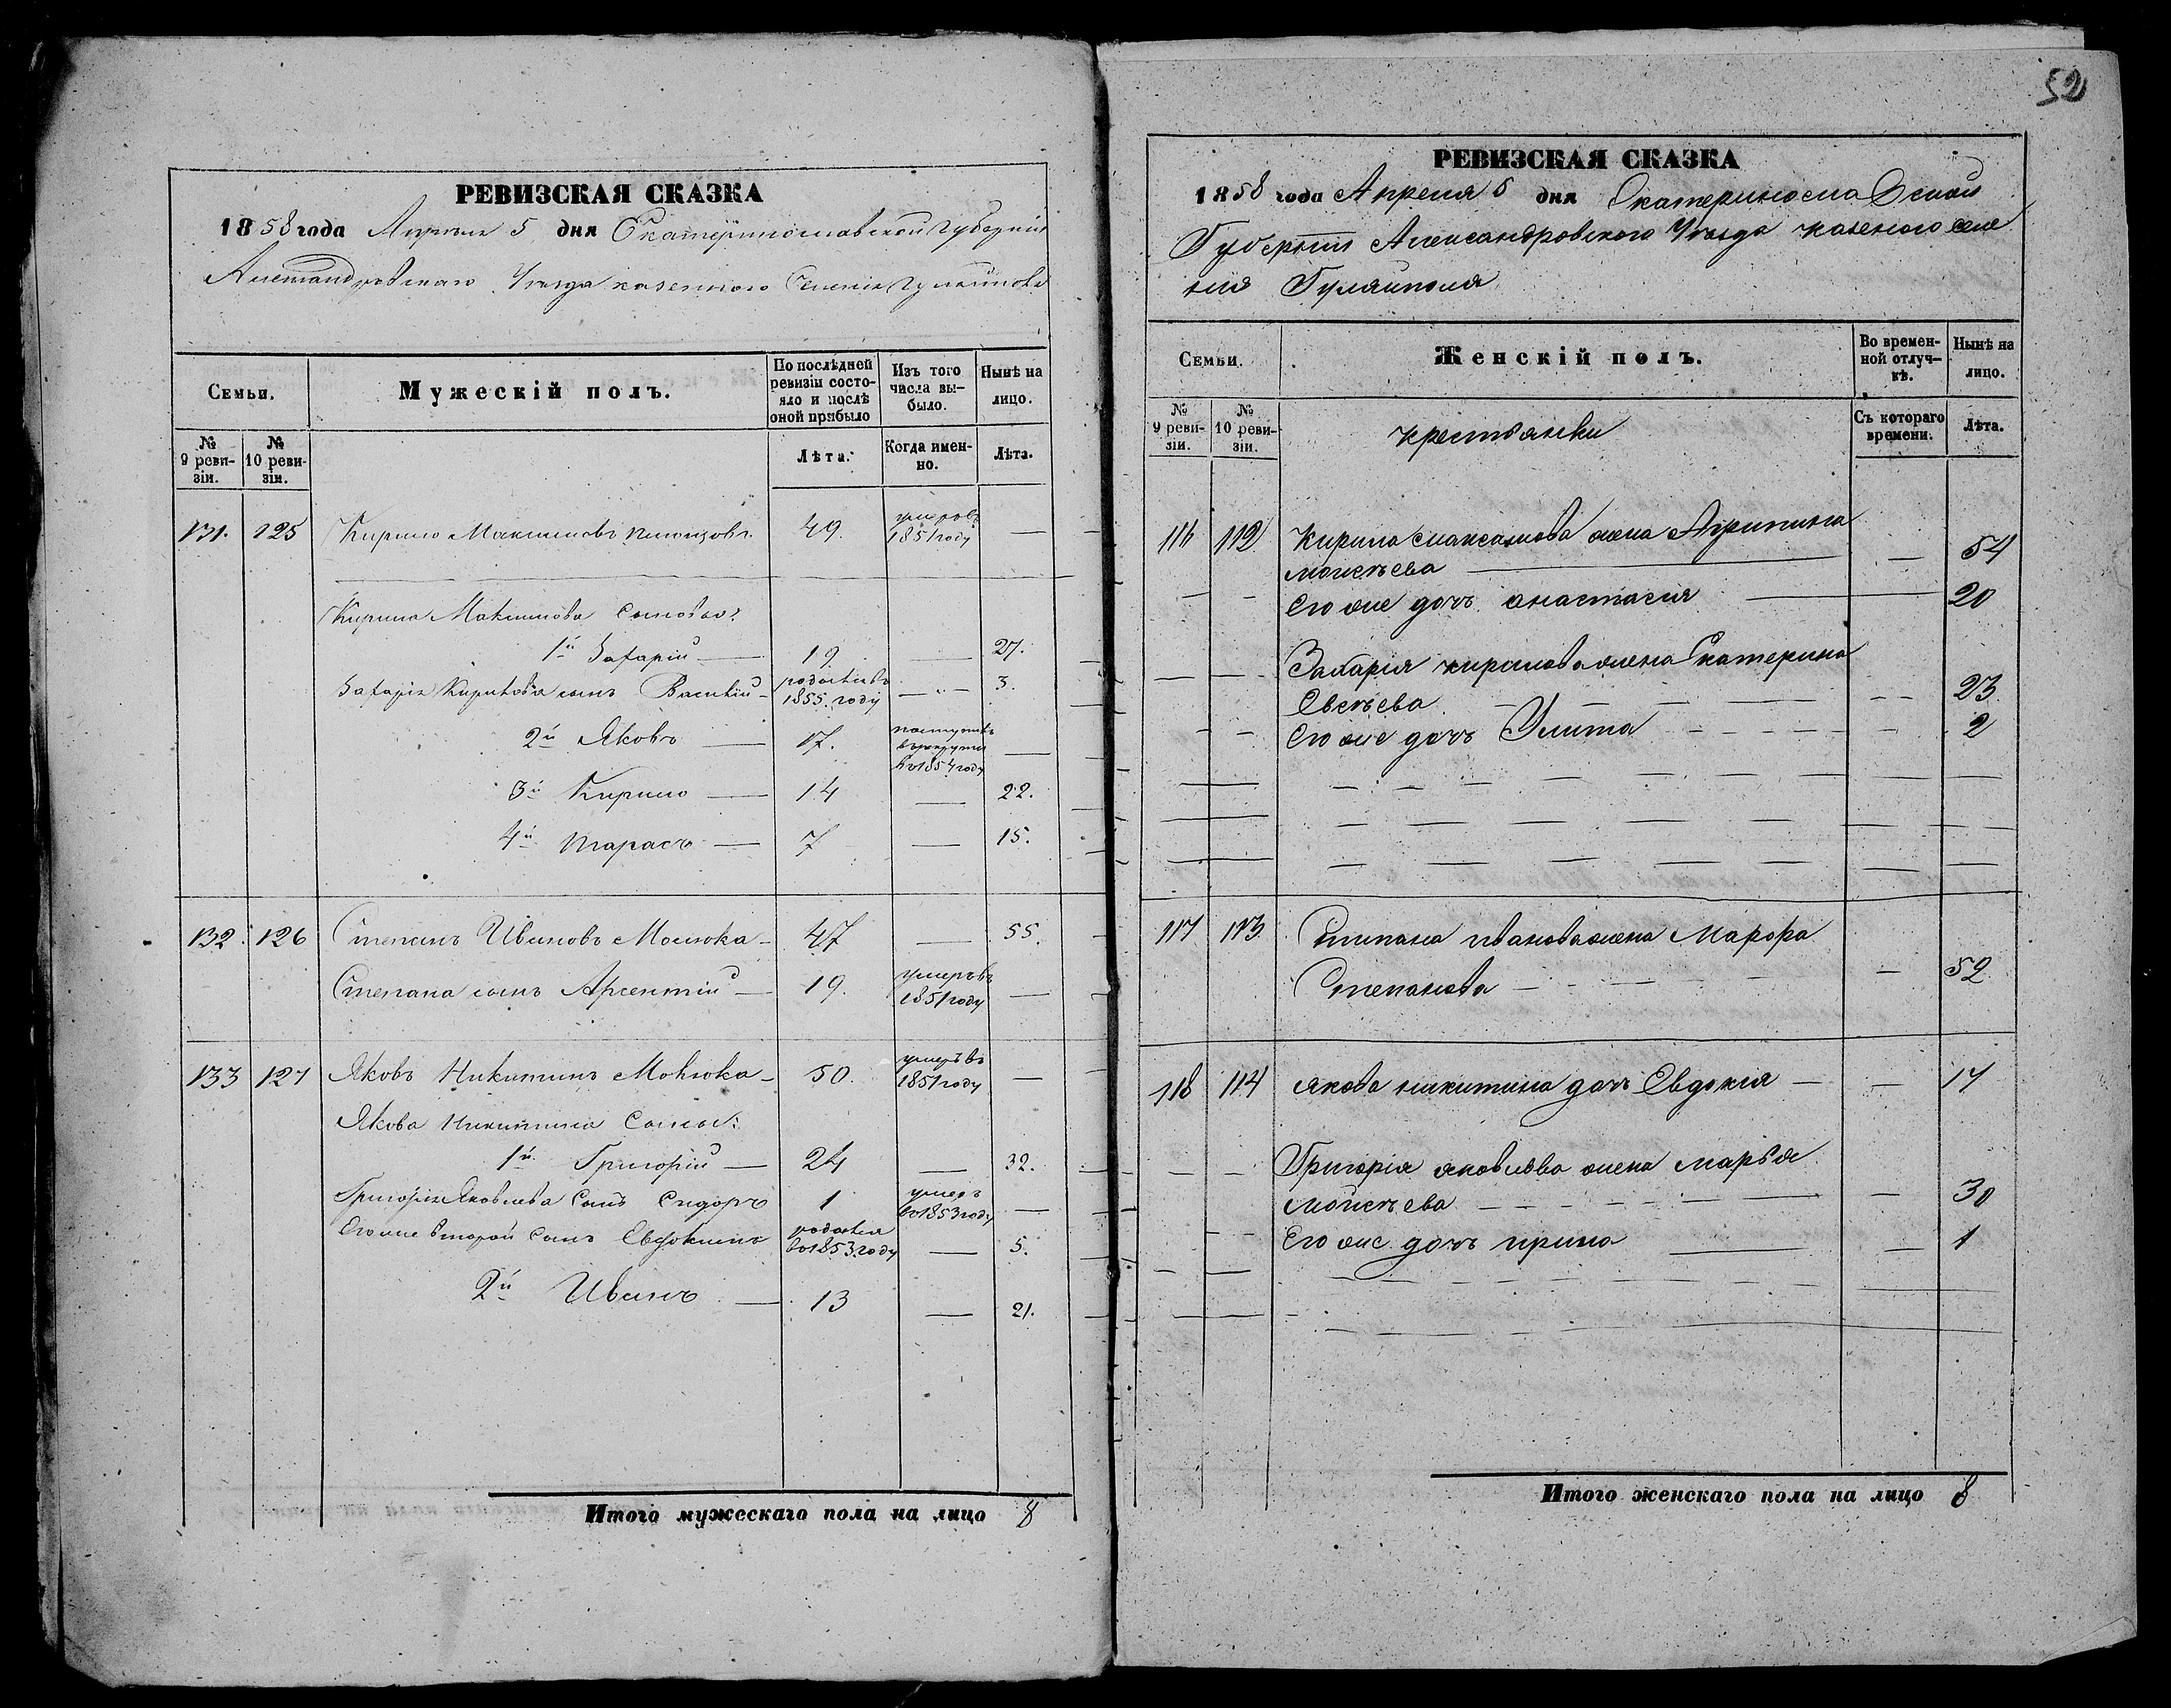 52
РЕВИЗСКАЯ СКАЗКА
1858 года Апреля 5 дня Екатеринославской губерніи
Александровского Уезда казенного Селенія Гуляйполя
Семьи.
Мужескій полъ.
По послѣдней ревизіи состо-
яло и послѣ оной прибыло
Изъ того числа вы-
было.
Нынѣ на лицо.
№ 9 реви-
зіи.
№ 10 реви-
зіи.
Лѣта.
Когда имен-
но.
Лѣта.
131. 125 Кирило Максимовъ 49. умеръ въ 1851 году —
Кирила Максимова сыновья:
1й Захарій — 19 — 27.
Захарія Кирилова сынъ Василій — родился въ 1855. году — 3.
2й Яковъ — 17. поступилъ въ рекруты во 1854 году —
3й Кирило — 14 — 22.
4й Тарасъ — 7 — 15.
132. 126 Степанъ Ивановъ Мовкока — 47 — 55.
Степана сынъ Арсентій — 19. умеръ въ 1851 году —
133 127 Яковъ Никитинъ Мовкока — 50. умеръ въ 1851 году —
Якова Никитина сыны:
1й Григорій — 24 — 32.
Григорія Яковлева сынъ Сидоръ 1 умеръ во 1853 году —
Его же второй сынъ Евдокимъ родился во 1853. году — 5.
2й Иванъ — 13 — 21.
Итого мужескаго пола на лицо 8
РЕВИЗСКАЯ СКАЗКА
1858 года Апреля 5 дня Екатеринославской
Губерніи Александровского Уезда казеного селе
нія Гуляйполя
Семьи.
Женскій полъ.
Во времен-
ной отлуч-
кѣ.
Нынѣ на лицо.
№ 9 реви-
зіи.
№ 10 реви-
зіи.
крестьянки
Съ котораго времени.
Лѣта.
116 112 Кирила Максимова жена Агрипина
Моисѣева — — 54
Его же дочь анастасия — 20
Захарія кирилова жена Екатерина
Евсѣева — — 23
Его же дочь Улита — — 2
117 113 Степана иванова жена Марфа
Степанова — — 52
118 114 якова никитина дочь Евдокия — — 17
Григорія яковлева жена марья
мойсѣева — — 30
Его же дочь ирина — — 1
Итого женскаго пола на лицо 8